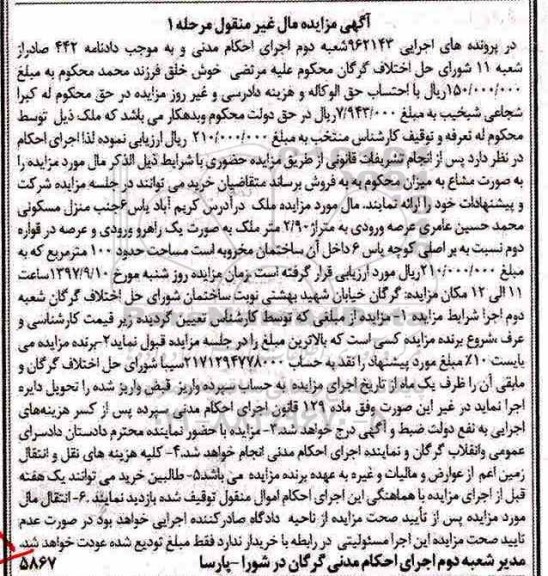 آگهی مزایده مال غیر منقول مرحله ۱
در پرونده های اجرایی ۹۶۲۱۴۳شعبه دوم اجرای احکام مدنی و به موجب دادنامه ۴۴۲ صادراز
شعبه ۱۱ شورای حل اختلاف گرگان محکوم علیه مرتضی خوش خلق فرزند محمد محکوم به مبلغ
۱۵۰/۰۰۰/۰۰۰ریال با احتساب حق الوکاله و هزینه دادرسی و غیر روز مزایده در حق محکوم له کبرا
شجاعی شیخیب به مبلغ ۷/۹۴۳/۰۰۰ریال در حق دولت محکوم وبدهکار می باشد که ملک ذیل توسط
محکوم له تعرفه و توقیف کارشناس منتخب به مبلغ ۲۱۰/۰۰۰/۰۰۰ ریال ارزیابی نموده لذا اجرای احکام
در نظر دارد پس از انجام تشریفات قانونی از طریق مزایده حضوری با شرایط ذیل الذکر مال مورد مزایده را
به صورت مشاع به میزان محکوم به به فروش برساند متقاضیان خرید می توانند در جلسه مزایده شرکت
و پیشنهادات خود را ارائه نمایند. مال مورد مزایده ملک درآدرس کریم آباد یاس۶جنب منزل مسکونی
محمد حسین عامری عرصه ورودی به متراژ۲/۹۰ متر ملک به صورت یک راهرو ورودی و عرصه در قواره
دوم نسبت به بر اصلی کوچه یاس ۶داخل آن ساختمان مخروبه است مساحت حدود ۱۰۰ مترمربع که به
مبلغ ۲۱۰/۰۰۰/۰۰۰ریال مورد ارزیابی قرار گرفته است .زمان مزایده روز شنبه مورخ ۱۳۹۷/۹/۱۰ساعت
۱۱ الی ۱۲ مکان مزایده: گرگان خیابان شهید بهشتی نوبت ساختمان شورای حل اختلاف گرگان شعبه
دوم اجرا شرایط مزایده ۱- مزایده از مبلغی که توسط کارشناس تعیین گردیده زیر قیمت کارشناسی و
عرف ،شروع برنده مزایده کسی است که بالاترین مبلغ را در جلسه مزایده قبول نماید۲-برنده مزایده می
بایست ۱۰٪ مبلغ مورد پیشنهاد را نقد به حساب ۲۱۷۱۲۹۴۷۷۸۰۰۰سیبا شورای حل اختلاف گرگان و
مابقی آن را ظرف یک ماه از تاریخ اجرای مزایده به حساب سپرده واریز قبض واریز شده را تحویل دایره
اجرا نماید در غیر این صورت وفق ماده ۱۲۹ قانون اجرای احکام مدنی سپرده پس از کسر هزینه‌های
اجرایی به نفع دولت ضبط و آگهی درج خواهد شد.۳- مزایده با حضور نماینده محترم دادستان دادسرای
عمومی وانقلاب گرگان و نماینده اجرای احکام مدنی انجام خواهد شد.۴- کلیه هزینه های نقل و انتقال
زمین اعم از عوارض و مالیات و غیره به عهده برنده مزایده می باشد۵- طالبین خرید می توانند یک هفته
قبل از اجرای مزایده با هماهنگی این اجرای احکام اموال منقول توقیف شده بازدید نمایند .۶- انتقال مال
مورد مزایده پس از تأیید صحت مزایده از ناحیه دادگاه صادرکننده اجرایی خواهد بود در صورت عدم
تایید صحت مزایده این اجرا مسئولیتی در رابطه با خریدار ندارد فقط مبلغ تودیع شده عودت خواهد شد.
مدیر شعبه دوم اجرای احکام مدنی گرگان در شورا -پارسا ۵۸۶۷